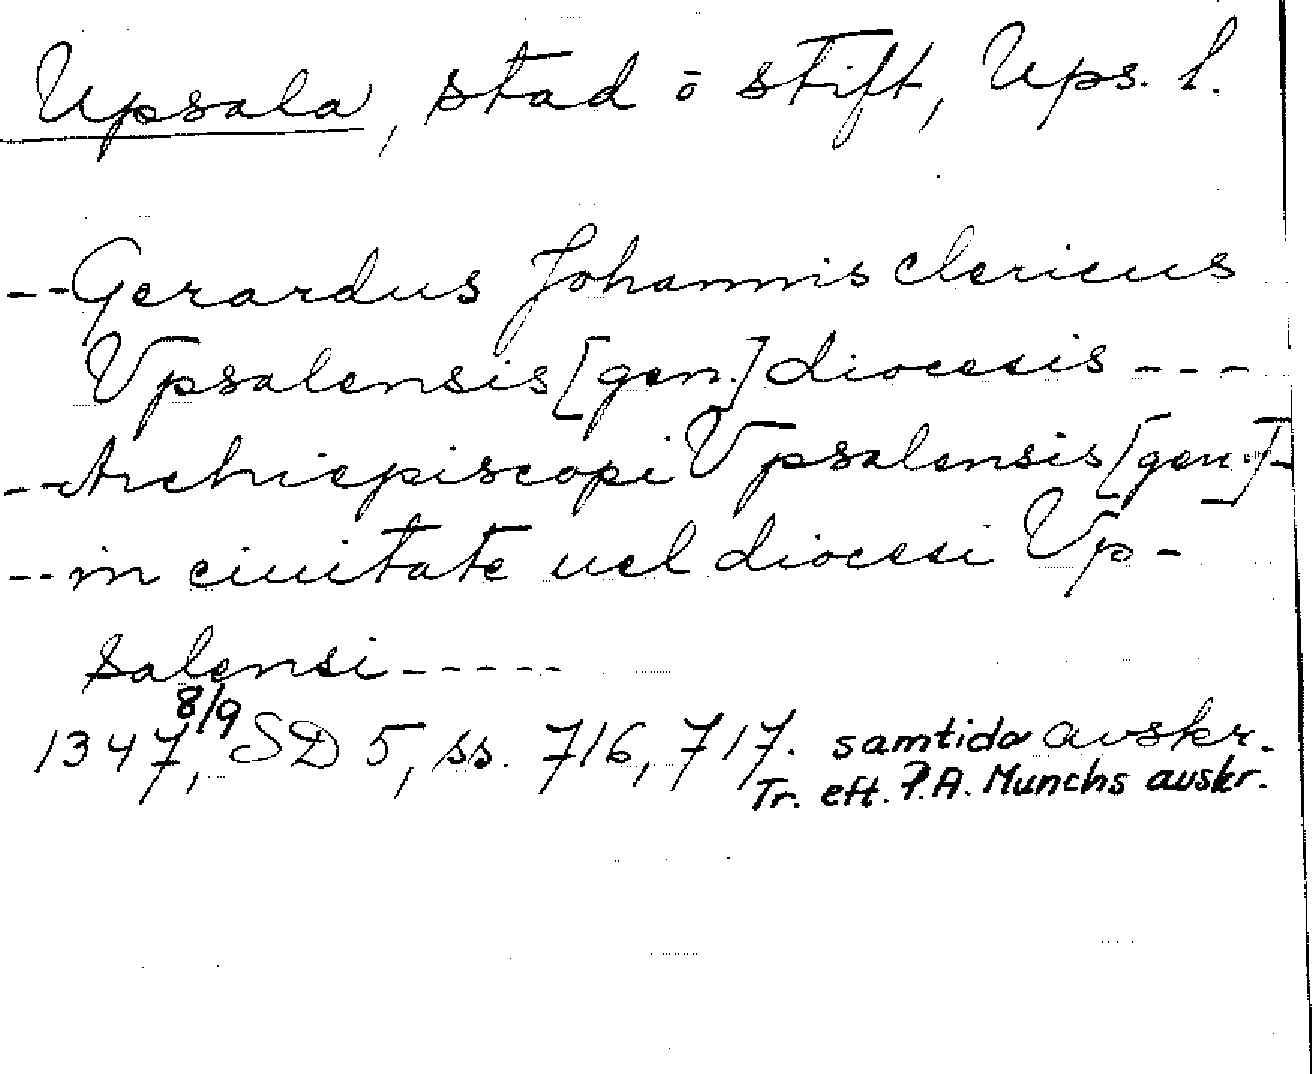 Upsala, stad o stift, Ups. l.
--Gerardus Johannis clericus
Vpsalensis [gen.] diocesis ---
--Archiepiscopi Vpsalensis [gen.]-
--in ciuitate uel diocesi Vp-
salensi-----
1347, 8/9 SD 5, ss. 716, 717. samtida avskr.
Tr. eft. P.A. Munchs avskr.